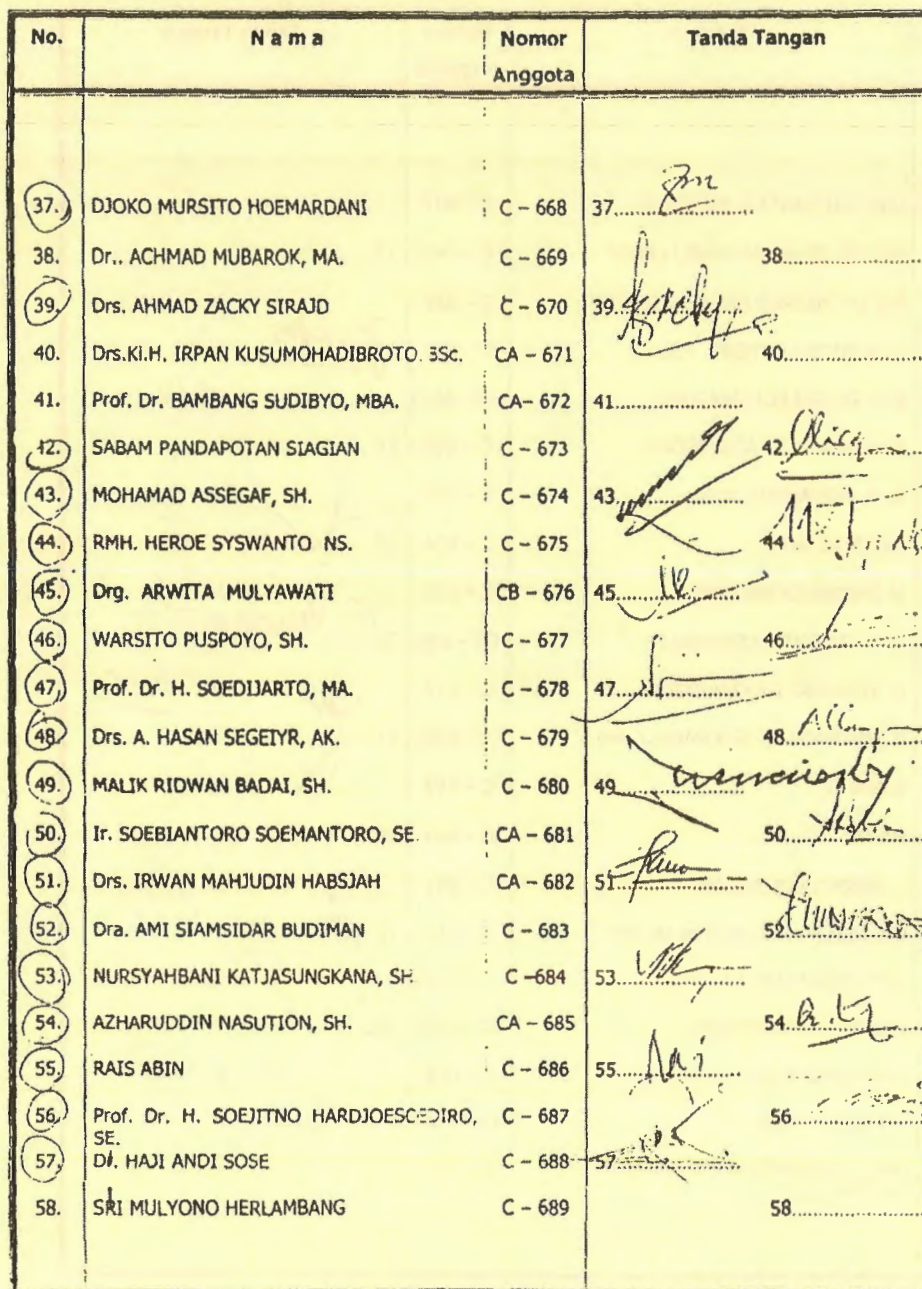 No. N a m a Nomor Anggota Tanda Tangan
37. DJOKO MURSITO HOEMARDANI C – 668 37
38. Dr.. ACHMAD MUBAROK, MA. C – 669 38
39. Drs. AHMAD ZACKY SIRAJD C – 670 39
40. Drs.Ki.H. IRPAN KUSUMOHADIBROTO. BSc. CA – 671 40
41. Prof. Dr. BAMBANG SUDIBYO, MBA. CA– 672 41
42. SABAM PANDAPOTAN SIAGIAN C – 673 42
43. MOHAMAD ASSEGAF, SH. C – 674 43
44. RMH. HEROE SYSWANTO NS. C – 675 44
45. Drg. ARWITA MULYAWATI CB – 676 45
46. WARSITO PUSPOYO, SH. C – 677 46
47. Prof. Dr. H. SOEDIJARTO, MA. C – 678 47
48. Drs. A. HASAN SEGEIYR, AK. C – 679 48
49. MALIK RIDWAN BADAI, SH. C – 680 49
50. Ir. SOEBIANTORO SOEMANTORO, SE. CA – 681 50
51. Drs. IRWAN MAHJUDIN HABSJAH CA – 682 51
52. Dra. AMI SIAMSIDAR BUDIMAN C – 683 52
53. NURSYAHBANI KATJASUNGKANA, SH. C –684 53
54. AZHARUDDIN NASUTION, SH. CA – 685 54
55. RAIS ABIN C – 686 55
56. Prof. Dr. H. SOEJITNO HARDJOESOEDIRO, C – 687 56
SE.
57. Dr. HAJI ANDI SOSE C – 688 57
58. SRI MULYONO HERLAMBANG C – 689 58